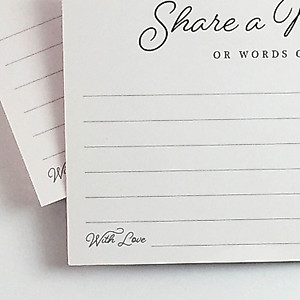 Share a
OR WORDS
With Love
With